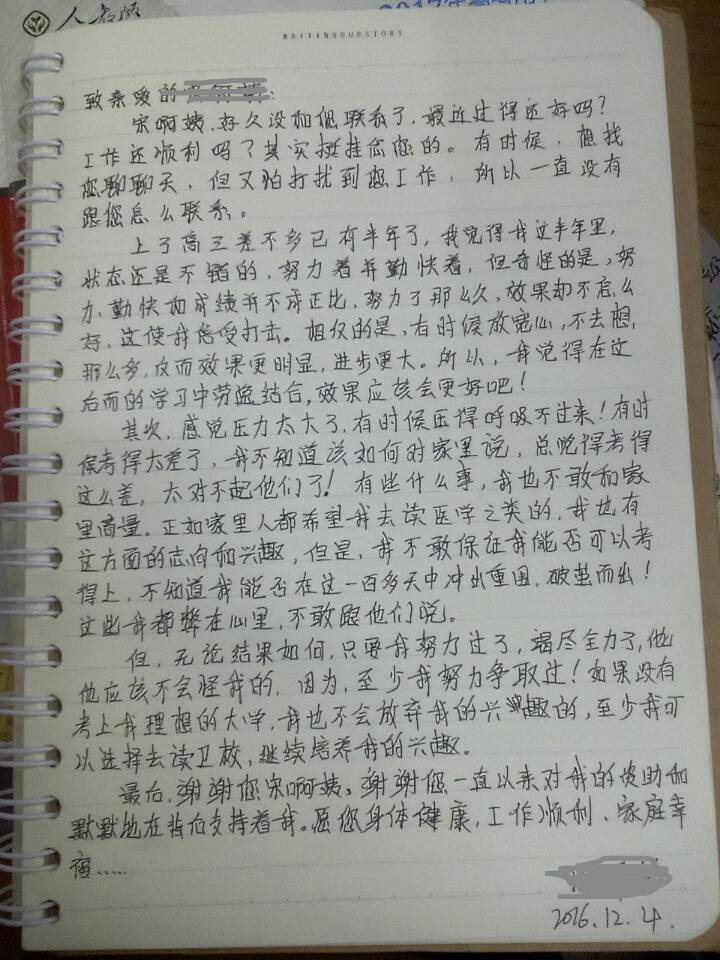 人教版
2017年高考
WRITEYOURSTORY
致亲爱的
宋啊姨，好久没和您联系了，最近过得还好吗？
工作还顺利吗？其实挺挂念您的。有时候，想找
您聊聊天，但又怕打扰到您工作，所以一直没有
跟您怎么联系。
上了高三差不多已有半年了，我觉得我这半年里，
状态还是不错的，努力着并勤快着，但奇怪的是，努
力、勤快和成绩并不成正比，努力了那么久，效果却不怎么
好，这使我倍受打击。相反的是，有时候放宽心，不去想，
那么多，反而效果更明显，进步更大。所以，我觉得在这
后面的学习中劳逸结合，效果应该会更好吧！
其次，感觉压力太大了，有时候压得呼吸不过来！有时
侯考得太差了，我不知道该如何对家里说，总觉得考得
这么差，太对不起他们了！有些什么事，我也不敢和家
里商量。正如家里人都希望我去读医学之类的，我也有
这方面的志向和兴趣，但是，我不敢保证我能否可以考
得上，不知道我能否在这一百多天中冲出重围，破茧而出！
这些我都弊在心里，不敢跟他们说。
但，无论结果如何，只要我努力过了，竭尽全力了，他
他应该不会怪我的，因为，至少我努力争取过！如果没有
考上我理想的大学，我也不会放弃我的兴趣的，至少我可
以选择去读卫校，继续培养我的兴趣。
最后，谢谢您宋啊姨，谢谢您一直以来对我的资助和
默默地在背后支持着我。愿您身体健康，工作顺利、家庭幸
福……
2016.12.4.